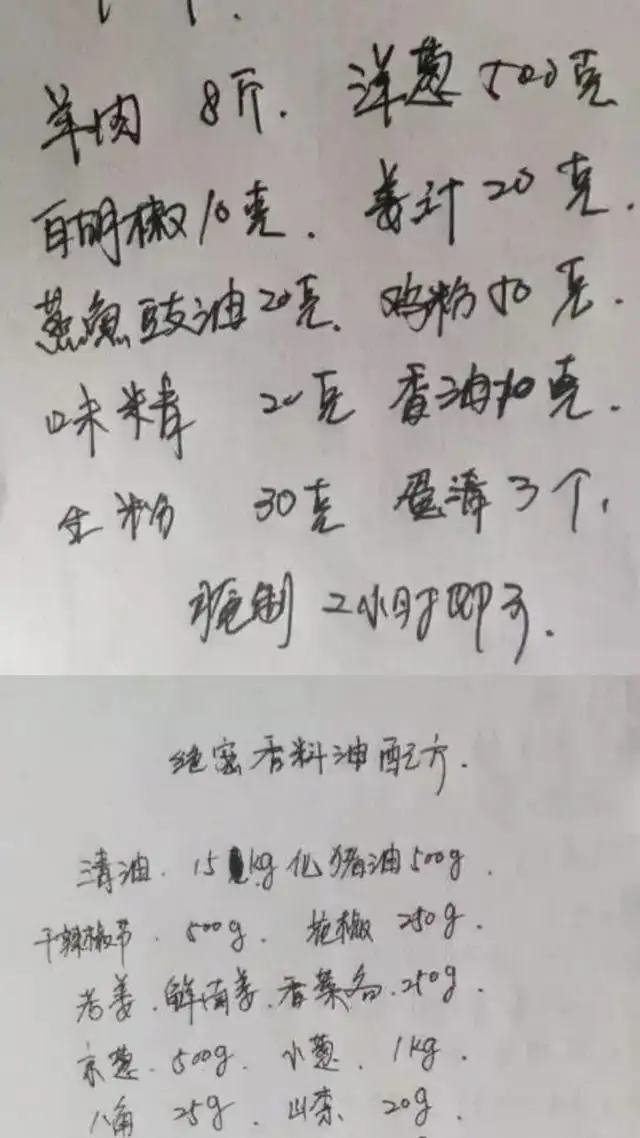 羊肉 8斤. 洋葱 500克
百胡椒10克. 姜汁20克.
蒸鱼豉油20克. 鸡粉50克.
味精 20克 香油10克.
生粉 30克 蛋清3个.
腌制 2小时即可.
绝密香料油配方.
清油. 15kg 化猪油500g.
干辣椒节. 500g. 花椒 250g.
老姜. 鲜南姜. 香菜各. 250g.
京葱. 500g. 小葱. 1kg.
八角 25g. 山柰 20g.